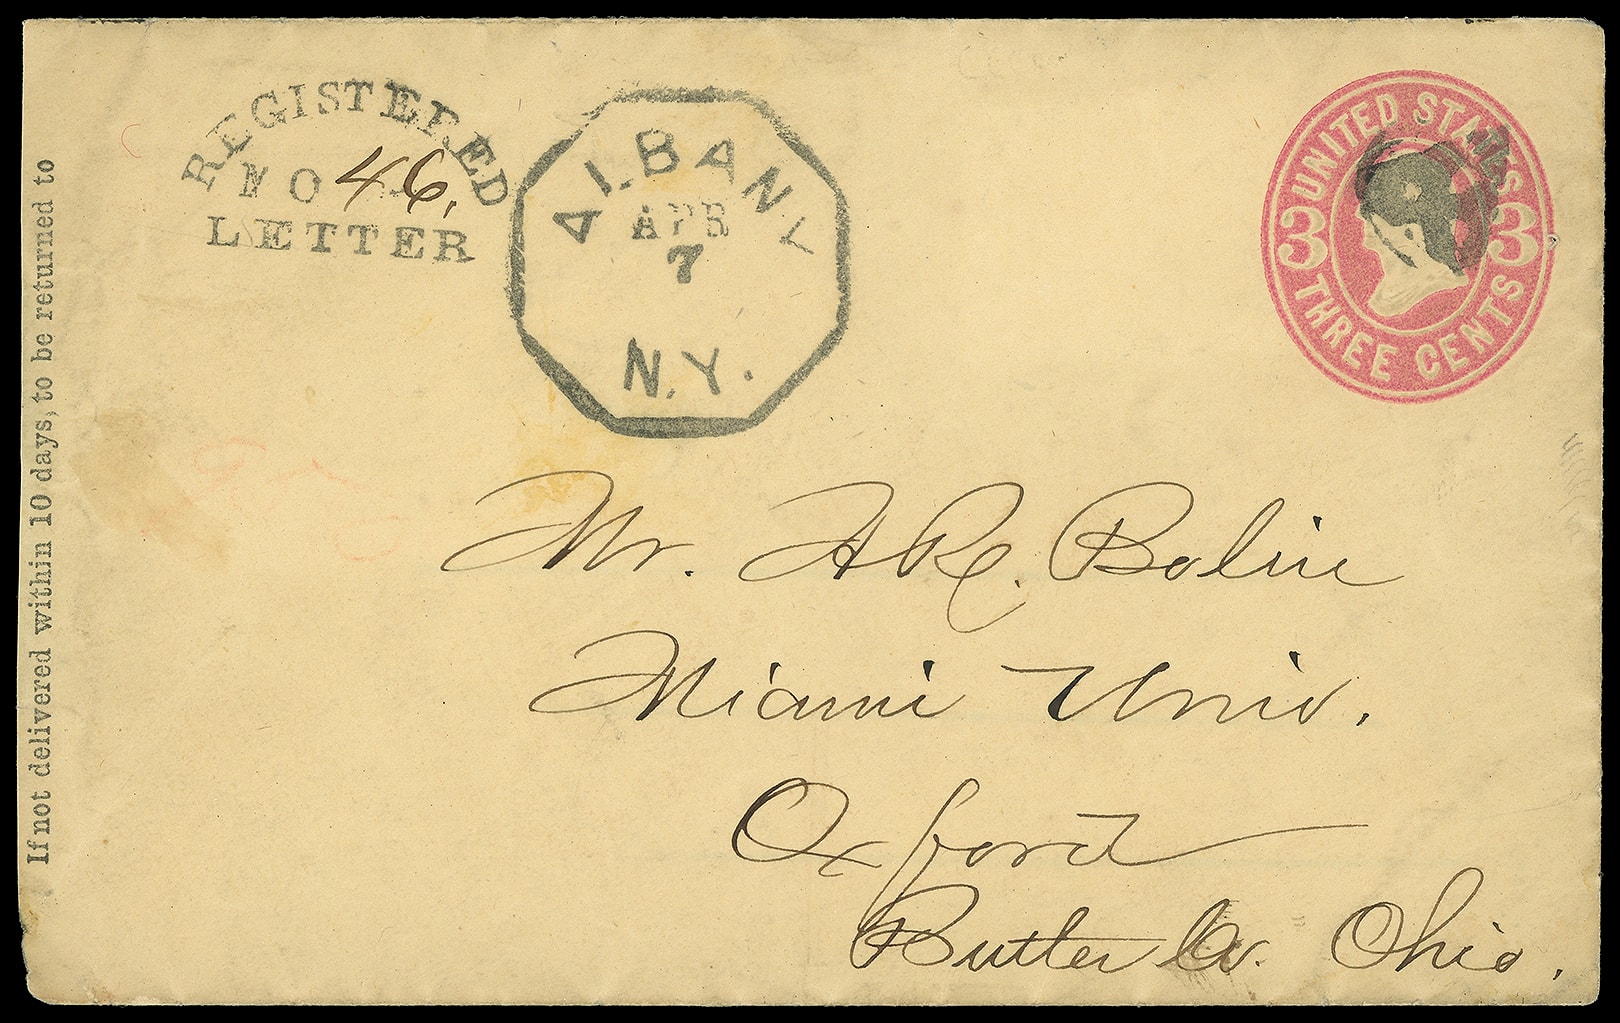 REGISTERED
NO 46.
LETTER
ALBANY
APR
7
N.Y.
UNITED STATES
3 3
THREE CENTS
Mr. A R. Bolin
Miami Univ.
Oxford
Butler Co. Ohio.
If not delivered within 10 days, to be returned to